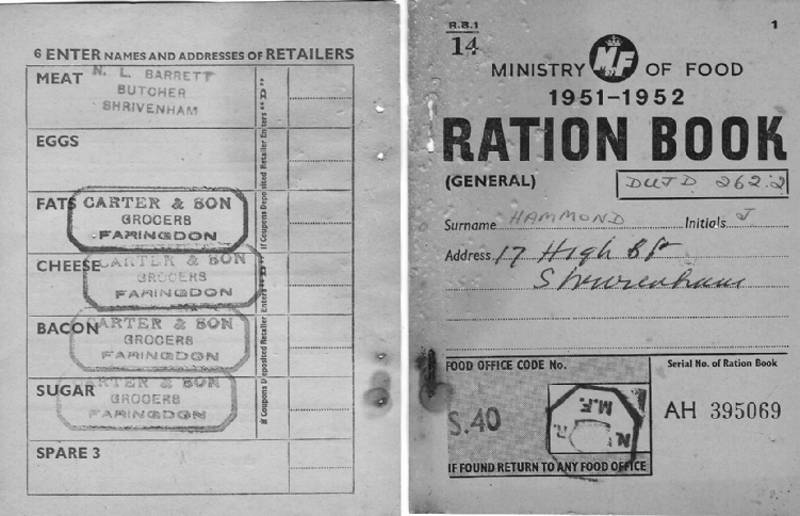 6 ENTER NAMES AND ADDRESSES OF RETAILERS
MEAT
N. L. BARRETT
BUTCHER
SHRIVENHAM
EGGS
FATS
CARTER & SON
GROCERS
FARINGDON
CHEESE
CARTER & SON
GROCERS
FARINGDON
BACON
CARTER & SON
GROCERS
FARINGDON
SUGAR
CARTER & SON
GROCERS
FARINGDON
SPARE 3
If Coupons Deposited Retailer Enters "D"
If Coupons Deposited Retailer Enters "D"
R.B.1
14
1
MF
MINISTRY OF FOOD
1951-1952
RATION BOOK
(GENERAL)
DUJD 262.2
Surname HAMMOND Initials J
Address 17 High St
Shrivenham
FOOD OFFICE CODE No.
S.40
M.F.
N.
R.
IF FOUND RETURN TO ANY FOOD OFFICE
Serial No. of Ration Book
AH 395069